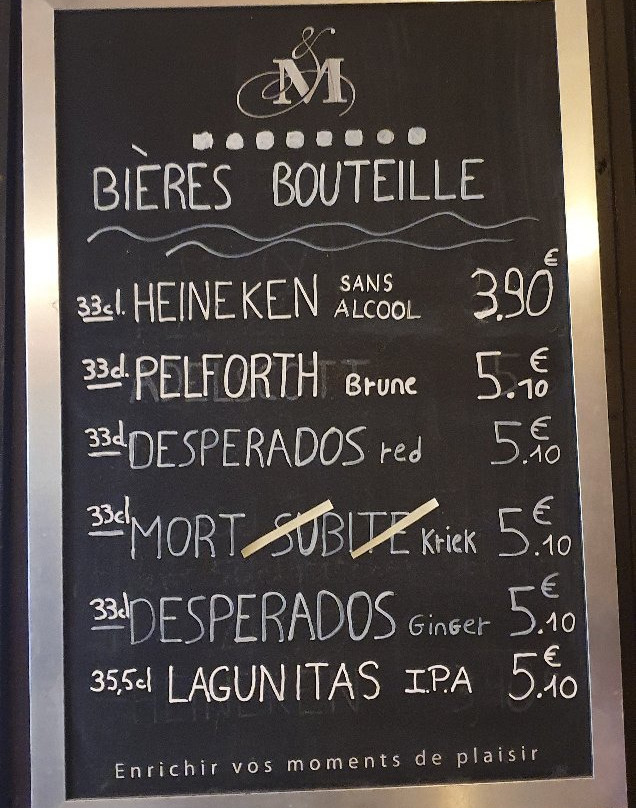 & M
BIÈRES BOUTEILLE
33cl. HEINEKEN SANS ALCOOL 3.90€
33cl. PELFORTH Brune 5.10€
33cl DESPERADOS red 5.10€
33cl MORT SUBITE Kriek 5.10€
33cl DESPERADOS Ginger 5.10€
35,5cl LAGUNITAS I.P.A 5.10€
Enrichir vos moments de plaisir